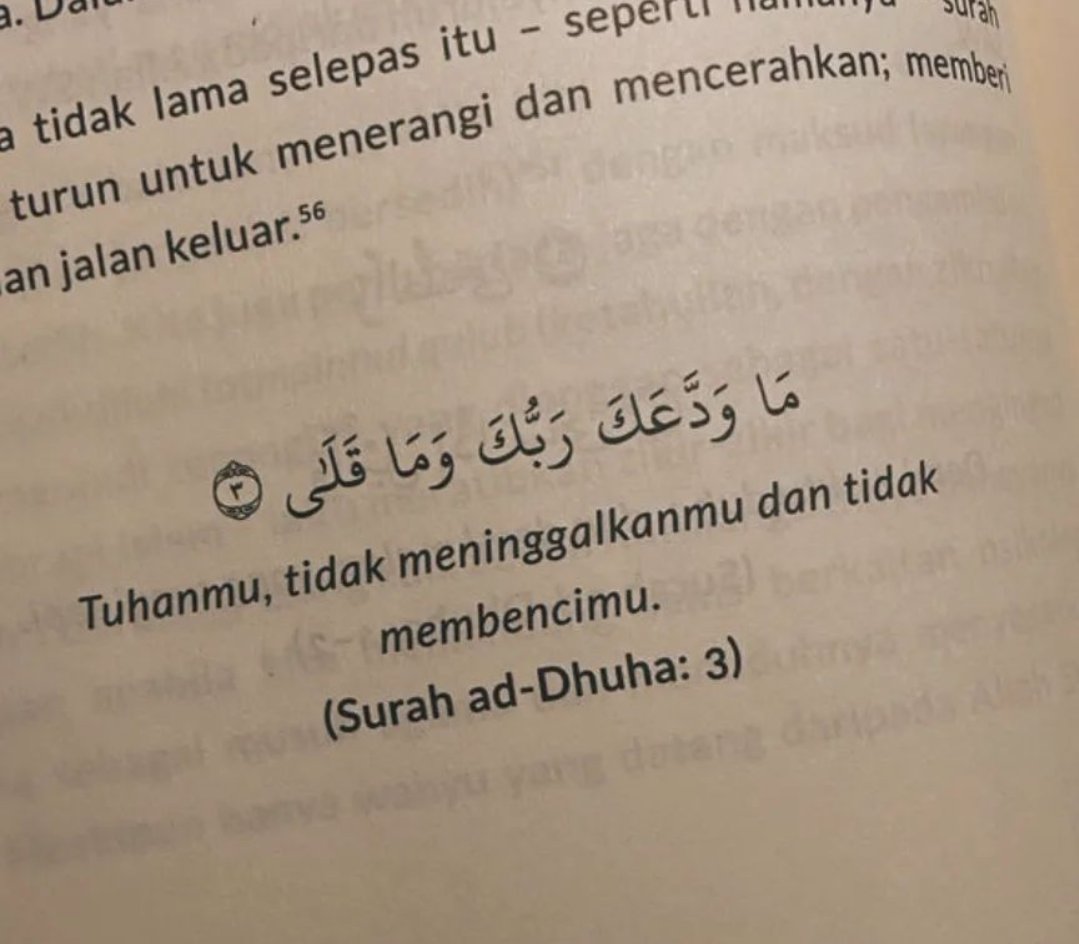 tidak lama selepas itu – seperti namanya – surah
turun untuk menerangi dan mencerahkan; memberi
jalan keluar.⁵⁶
مَا وَدَّعَكَ رَبُّكَ وَمَا قَلَىٰ ۝٣
Tuhanmu, tidak meninggalkanmu dan tidak
membencimu.
(Surah ad-Dhuha: 3)